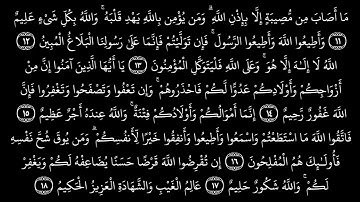 مَا أَصَابَ مِن مُّصِيبَةٍ إِلَّا بِإِذْنِ اللَّهِ ۗ وَمَن يُؤْمِن بِاللَّهِ يَهْدِ قَلْبَهُ ۚ وَاللَّهُ بِكُلِّ شَيْءٍ عَلِيمٌ
﴿١١﴾ وَأَطِيعُوا اللَّهَ وَأَطِيعُوا الرَّسُولَ ۚ فَإِن تَوَلَّيْتُمْ فَإِنَّمَا عَلَىٰ رَسُولِنَا الْبَلَاغُ الْمُبِينُ ﴿١٢﴾
اللَّهُ لَا إِلَٰهَ إِلَّا هُوَ ۚ وَعَلَى اللَّهِ فَلْيَتَوَكَّلِ الْمُؤْمِنُونَ ﴿١٣﴾ يَا أَيُّهَا الَّذِينَ آمَنُوا إِنَّ مِنْ
أَزْوَاجِكُمْ وَأَوْلَادِكُمْ عَدُوًّا لَّكُمْ فَاحْذَرُوهُمْ ۚ وَإِن تَعْفُوا وَتَصْفَحُوا وَتَغْفِرُوا فَإِنَّ
اللَّهَ غَفُورٌ رَّحِيمٌ ﴿١٤﴾ إِنَّمَا أَمْوَالُكُمْ وَأَوْلَادُكُمْ فِتْنَةٌ ۚ وَاللَّهُ عِندَهُ أَجْرٌ عَظِيمٌ ﴿١٥﴾
فَاتَّقُوا اللَّهَ مَا اسْتَطَعْتُمْ وَاسْمَعُوا وَأَطِيعُوا وَأَنفِقُوا خَيْرًا لِّأَنفُسِكُمْ ۗ وَمَن يُوقَ شُحَّ نَفْسِهِ
فَأُولَٰئِكَ هُمُ الْمُفْلِحُونَ ﴿١٦﴾ إِن تُقْرِضُوا اللَّهَ قَرْضًا حَسَنًا يُضَاعِفْهُ لَكُمْ وَيَغْفِرْ
لَكُمْ ۚ وَاللَّهُ شَكُورٌ حَلِيمٌ ﴿١٧﴾ عَالِمُ الْغَيْبِ وَالشَّهَادَةِ الْعَزِيزُ الْحَكِيمُ ﴿١٨﴾